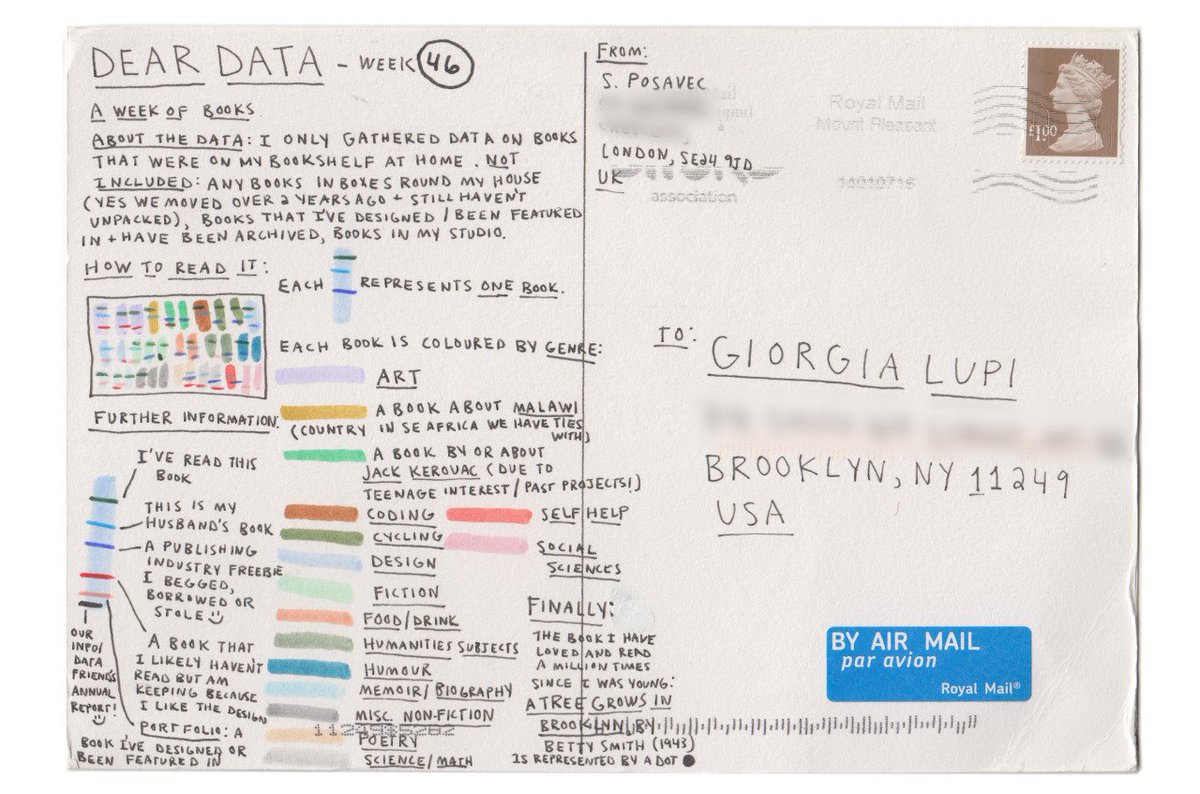 DEAR DATA - WEEK 46
A WEEK OF BOOKS
ABOUT THE DATA: I ONLY GATHERED DATA ON BOOKS
THAT WERE ON MY BOOKSHELF AT HOME. NOT
INCLUDED: ANY BOOKS IN BOXES ROUND MY HOUSE
(YES WE MOVED OVER 2 YEARS AGO + STILL HAVEN'T
UNPACKED), BOOKS THAT I'VE DESIGNED / BEEN FEATURED
IN + HAVE BEEN ARCHIVED, BOOKS IN MY STUDIO.
HOW TO READ IT:
EACH REPRESENTS ONE BOOK.
EACH BOOK IS COLOURED BY GENRE:
ART
A BOOK ABOUT MALAWI
(COUNTRY IN SE AFRICA WE HAVE TIES
WITH)
A BOOK BY OR ABOUT
JACK KEROUAC (DUE TO
TEENAGE INTEREST / PAST PROJECTS!)
CODING
CYCLING
DESIGN
FICTION
FOOD/DRINK
HUMANITIES SUBJECTS
HUMOUR
MEMOIR/BIOGRAPHY
MISC. NON-FICTION
POETRY
SCIENCE/MATH
SELF HELP
SOCIAL
SCIENCES
FURTHER INFORMATION.
I'VE READ THIS
BOOK
THIS IS MY
HUSBAND'S BOOK
A PUBLISHING
INDUSTRY FREEBIE
I BEGGED,
BORROWED OR
STOLE
A BOOK THAT
I LIKELY HAVEN'T
READ BUT AM
KEEPING BECAUSE
I LIKE THE DESIGN
PORTFOLIO: A
BOOK I'VE DESIGNED OR
BEEN FEATURED IN
OUR
INFO/
DATA
FRIENDS
ANNUAL
REPORT!
FINALLY:
THE BOOK I HAVE
LOVED AND READ
A MILLION TIMES
SINCE I WAS YOUNG:
A TREE GROWS IN
BROOKLYN, BY
BETTY SMITH (1943)
IS REPRESENTED BY A DOT
FROM:
S. POSAVEC
LONDON, SE24 9JD
UK
association
Royal Mail
Mount Pleasant
£1.00
TO:
GIORGIA LUPI
BROOKLYN, NY 11249
USA
BY AIR MAIL
par avion
Royal Mail®